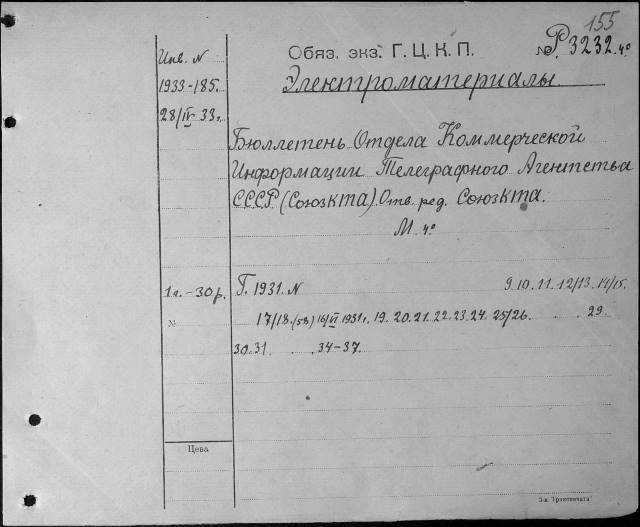 155
Обяз. экз. Г. Ц. К. П.
№ Р 3232. 4°
Инв. N
1933-185.
28/IV 33 г.
Электроматериалы.
Бюллетень Отдела Коммерческой
Информации Телеграфного Агентства
СССР (Союзкта). Отв. ред. Союзкта.
М. 4°
1 г. – 30 р.
Г. 1931. N 9. 10. 11. 12/13. 14/15.
№
17/18. (58) 16/VI 1931 г. 19. 20. 21. 22. 23. 24. 25/26. . . 29.
30. 31. . . 34-37.
Цена